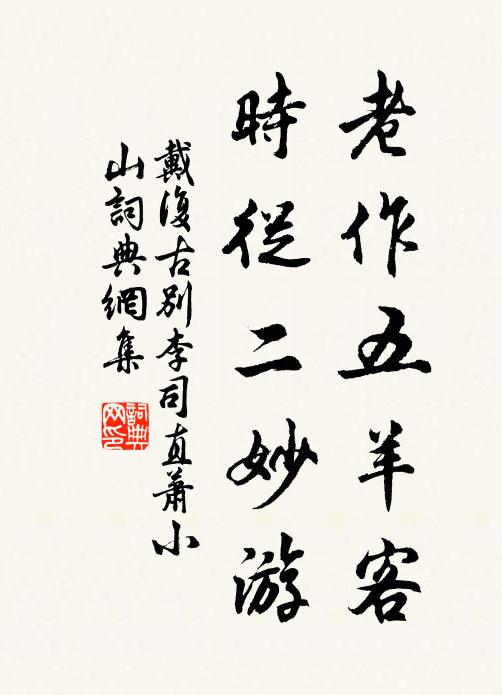 老作五羊客
時從二妙游
戴復古別李司直蕭小
山詞典網集
詞典网印